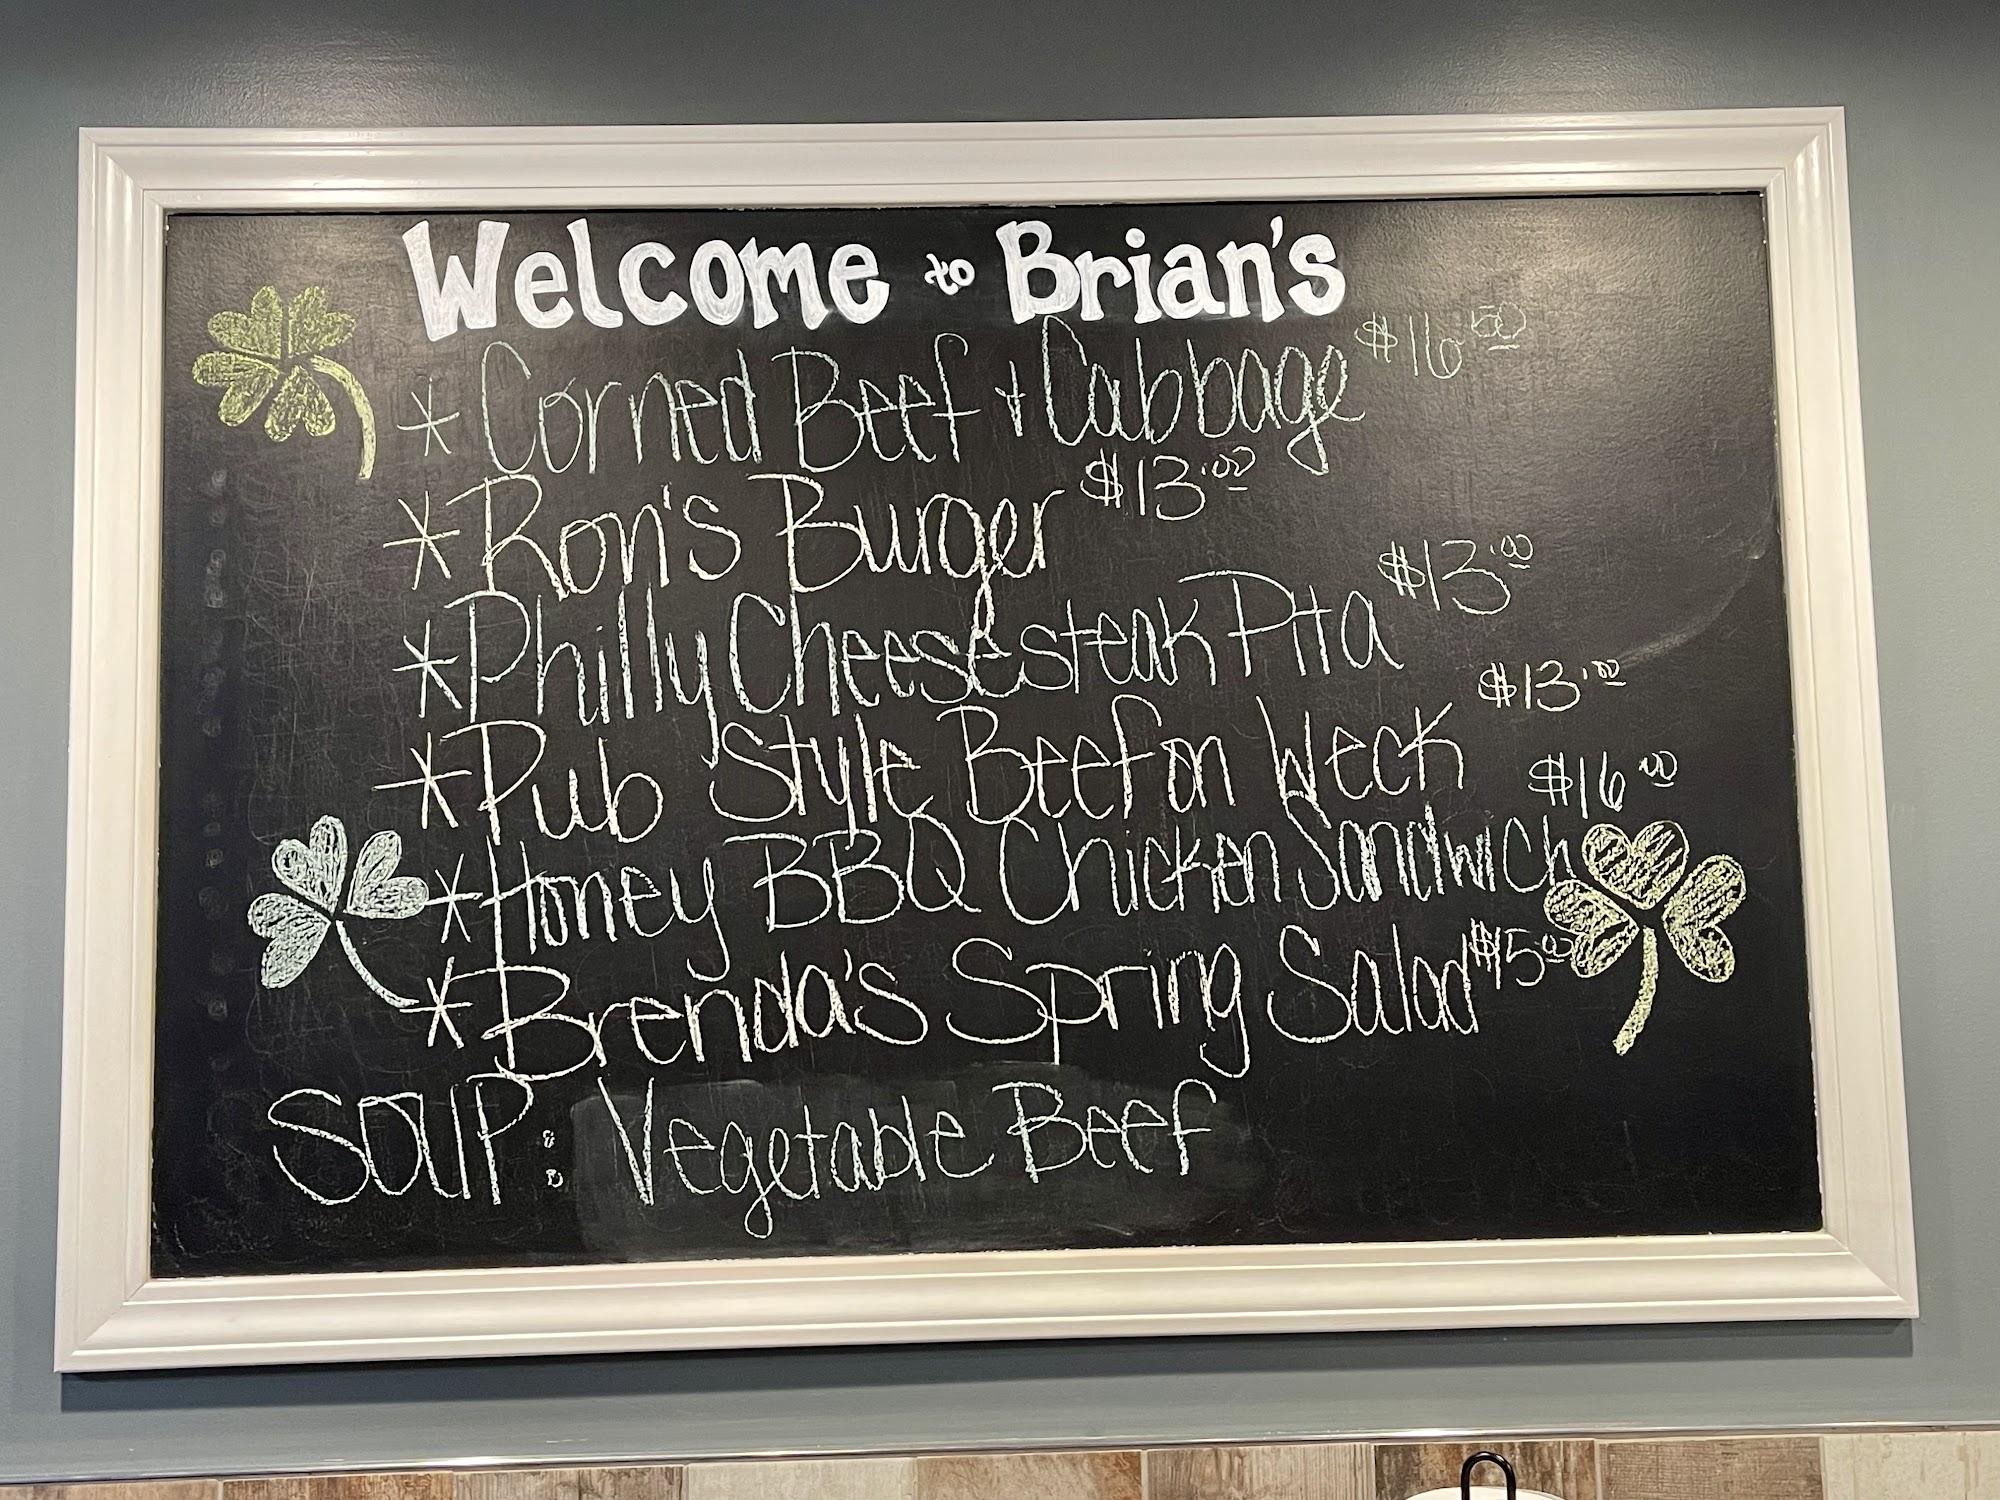 Welcome to Brian's
* Corned Beef + Cabbage $16.50
* Ron's Burger $13.00
* Philly Cheesesteak Pita $13.00
* Pub Style Beef on Weck $13.00
* Honey BBQ Chicken Sandwich $16.00
* Brenda's Spring Salad $15.00
SOUP: Vegetable Beef